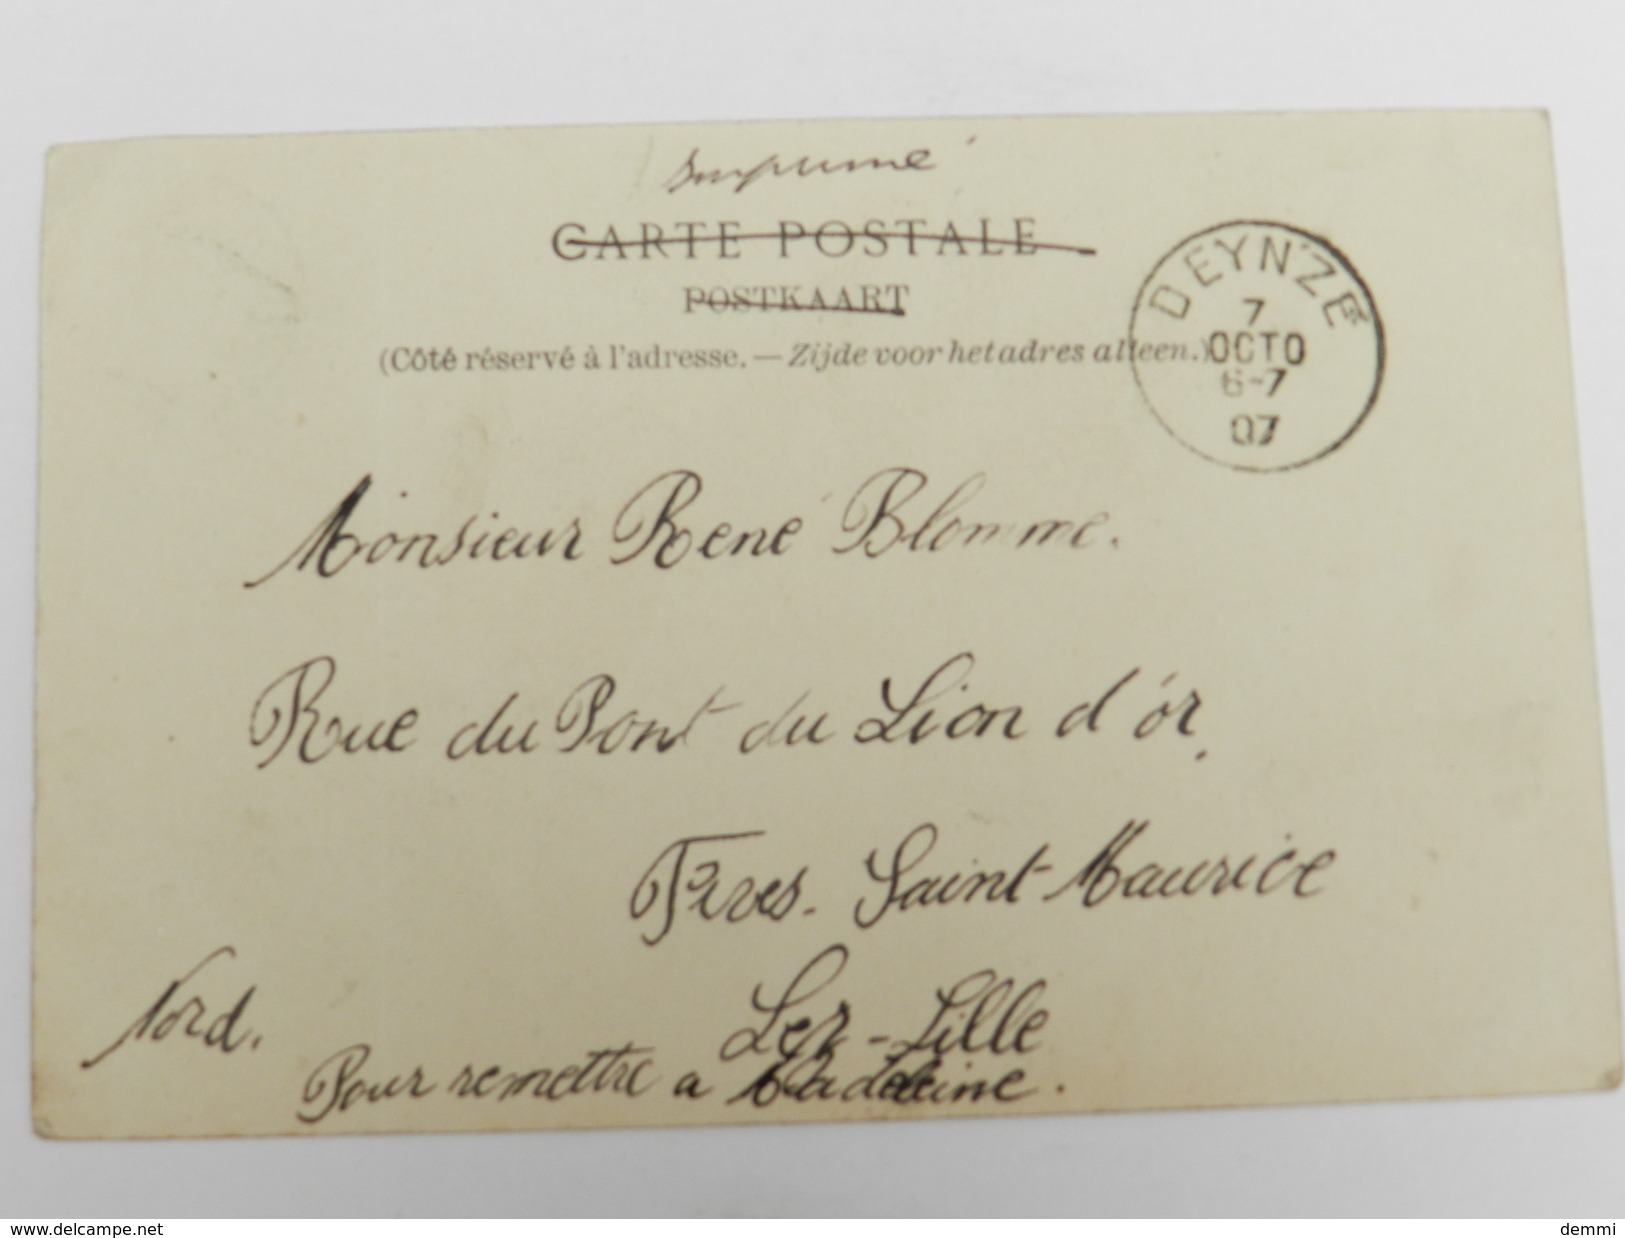 Imprimé
CARTE POSTALE
POSTKAART
(Côté réservé à l'adresse. — Zijde voor het adres alleen.)
DEYNZE
7
OCTO
6-7
07
Monsieur René Blomme.
Rue du Pont du Lion d'ór.
Fives-Saint-Maurice
Lez-Lille
Nord.
Pour remettre a Madeleine.
www.delcampe.net
demmi